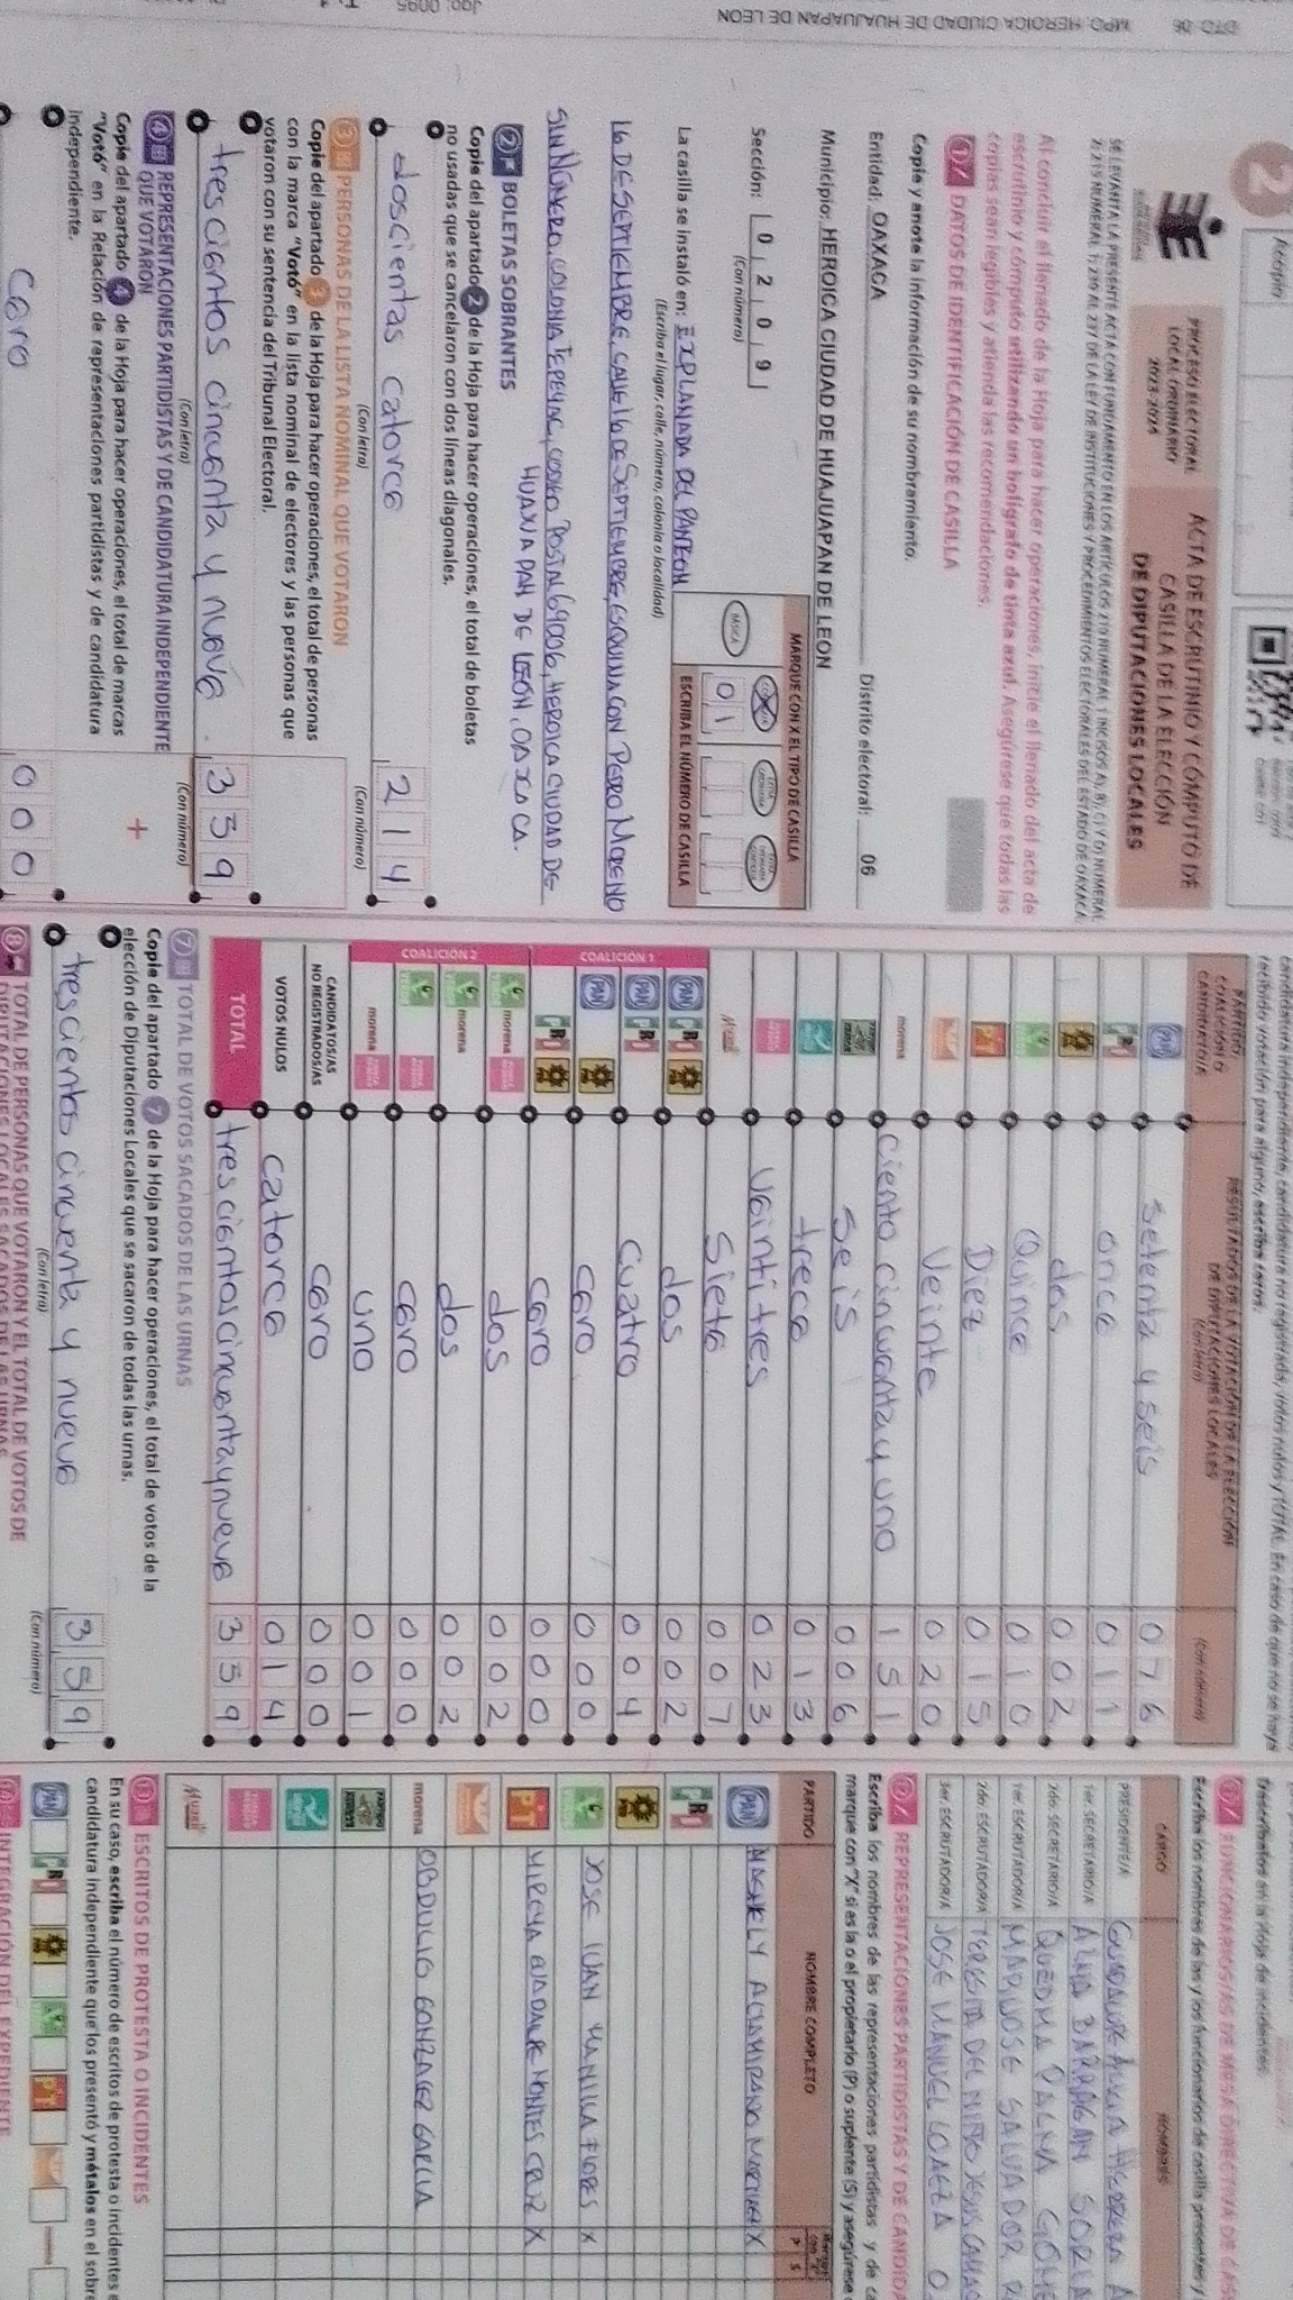 DTO. 06 MPO. HEROICA CIUDAD DE HUAJUAPAN DE LEON
2
Acopio
PROCESO ELECTORAL
LOCAL ORDINARIO
2023-2024
ACTA DE ESCRUTINIO Y CÓMPUTO DE
CASILLA DE LA ELECCIÓN
DE DIPUTACIONES LOCALES
Al concluir el llenado de la Hoja para hacer operaciones, inicie el llenado del acta de
escrutinio y cómputo utilizando un bolígrafo de tinta azul. Asegúrese que todas las
copias sean legibles y atienda las recomendaciones.
1 DATOS DE IDENTIFICACIÓN DE CASILLA
Copie y anote la información de su nombramiento.
Entidad: OAXACA Distrito electoral: 06
Municipio: HEROICA CIUDAD DE HUAJUAPAN DE LEON
Sección: 0 2 0 9
(Con número)
MARQUE CON X EL TIPO DE CASILLA
BÁSICA
0 1
ESCRIBA EL NÚMERO DE CASILLA
La casilla se instaló en: EXPLANADA DEL PANTEON
(Escriba el lugar, calle, número, colonia o localidad)
16 DE SEPTIEMBRE, CALLE 16 DE SEPTIEMBRE, ESQUINA CON PEDRO MORENO
SIN NÚMERO, COLONIA TEPEYAC, CODIGO POSTAL 69006, HEROICA CIUDAD DE
HUAJUAPAN DE LEÓN, OAXACA.
2 BOLETAS SOBRANTES
Copie del apartado 2 de la Hoja para hacer operaciones, el total de boletas
no usadas que se cancelaron con dos líneas diagonales.
doscientas catorce 2 1 4
(Con letra) (Con número)
3 PERSONAS DE LA LISTA NOMINAL QUE VOTARON
Copie del apartado 3 de la Hoja para hacer operaciones, el total de personas
con la marca "Votó" en la lista nominal de electores y las personas que
votaron con su sentencia del Tribunal Electoral.
trescientos cincuenta y nueve. 3 5 9
(Con letra) (Con número)
4 REPRESENTACIONES PARTIDISTAS Y DE CANDIDATURA INDEPENDIENTE
QUE VOTARON
Copie del apartado 4 de la Hoja para hacer operaciones, el total de marcas
"Votó" en la Relación de representaciones partidistas y de candidatura
independiente.
+
cero 0 0 0
PARTIDO,
COALICIÓN O
CANDIDATURA
RESULTADOS DE LA VOTACIÓN DE LA ELECCIÓN
DE DIPUTACIONES LOCALES
(Con letra)
(Con número)
PAN setenta y seis 0 7 6
PRI once 0 1 1
PRD dos 0 0 2
VERDE Quince 0 1 0
PT Diez 0 1 5
Veinte 0 2 0
morena Ciento cincuenta y uno 1 5 1
Seis 0 0 6
trece 0 1 3
Veintitres 0 2 3
Mujer Siete 0 0 7
COALICIÓN 1
PAN PRI PRD dos 0 0 2
PAN PRI Cuatro 0 0 4
PAN PRD cero 0 0 0
PRI PRD cero 0 0 0
COALICIÓN 2
VERDE morena dos 0 0 2
VERDE morena dos 0 0 2
VERDE cero 0 0 0
morena uno 0 0 1
CANDIDATOS/AS
NO REGISTRADOS/AS cero 0 0 0
VOTOS NULOS catorce 0 1 4
TOTAL trescientos cincuenta y nueve 3 5 9
7 TOTAL DE VOTOS SACADOS DE LAS URNAS
Copie del apartado 7 de la Hoja para hacer operaciones, el total de votos de la
elección de Diputaciones Locales que se sacaron de todas las urnas.
trescientos cincuenta y nueve 3 5 9
(Con letra) (Con número)
8 TOTAL DE PERSONAS QUE VOTARON Y EL TOTAL DE VOTOS DE
DIPUTACIONES LOCALES SACADOS DE LAS URNAS
FUNCIONARIOS/AS DE MESA DIRECTIVA DE CAS
Escriba los nombres de las y los funcionarios de casilla presentes y
CARGO NOMBRES
PRESIDENTE/A GUADALUPE ALICIA HERRERA A
1er. SECRETARIO/A ALMA BARRAGAN SORIA
2do. SECRETARIO/A QUEDMA PALMA GOME
1er. ESCRUTADOR/A MARIJOSE SALVADOR R
2do. ESCRUTADOR/A TERESITA DEL NIÑO JESUS CAMAC
3er. ESCRUTADOR/A JOSE MANUEL LOAEZA O.
12 REPRESENTACIONES PARTIDISTAS Y DE CANDIDA
Escriba los nombres de las representaciones partidistas y de ca
marque con "X" si es la o el propietario (P) o suplente (S) y asegúrese
PARTIDO NOMBRE COMPLETO P S
PAN MAGNELY ALTAMIRANO MARTINEZ X
PRI
PRD
VERDE JOSE IVAN MANILLA FLORES X
PT MIREYA GUADALUPE MONTES CRUZ X
morena OBDULIO GONZALEZ GARCIA
Mujer
13 ESCRITOS DE PROTESTA O INCIDENTES
En su caso, escriba el número de escritos de protesta o incidentes e
candidatura independiente que los presentó y métalos en el sobre
PAN PRI PRD VERDE PT
14 INTEGRACIÓN DEL EXPEDIENTE